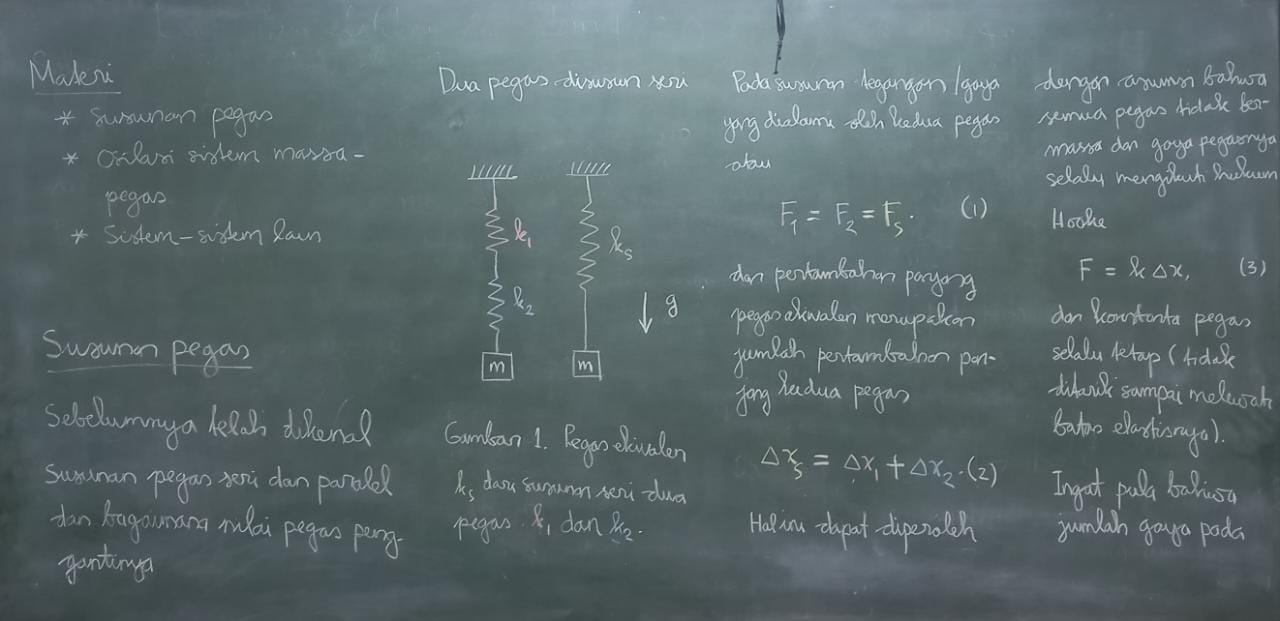 Materi
* Susunan pegas
* Osilasi sistem massa-
pegas
* Sistem-sistem lain
Susunan pegas
Sebelumnya telah dikenal
susunan pegas seri dan paralel
dan bagaimana nilai pegas peng-
gantinya
Dua pegas disusun seri
k₁
k₂
m
kₛ
m
g
Gambar 1. Pegas ekivalen
kₛ dari susunan seri dua
pegas k₁ dan k₂.
Pada susunan tegangan / gaya
yang dialami oleh kedua pegas
atau
F₁ = F₂ = Fₛ. (1)
dan pertambahan panjang
pegas ekivalen merupakan
jumlah pertambahan pan-
jang kedua pegas
Δxₛ = Δx₁ + Δx₂. (2)
Hal ini dapat diperoleh
dengan asumsi bahwa
semua pegas tidak ber-
massa dan gaya pegasnya
selalu mengikuti hukum
Hooke
F = k Δx, (3)
dan konstanta pegas
selalu tetap (tidak
ditarik sampai melewati
batas elastisnya).
Ingat pula bahwa
jumlah gaya pada